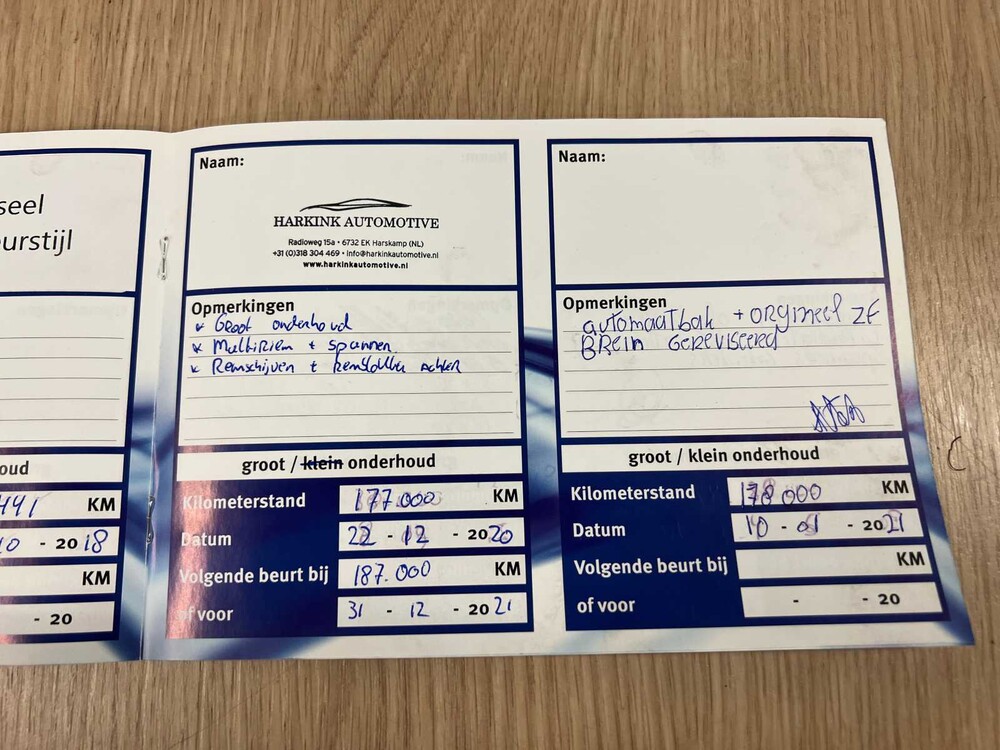 seel
urstijl
oud
441 KM
10 - 20 18
KM
- 20
Naam:
HARKINK AUTOMOTIVE
Radioweg 15a • 6732 EK Harskamp (NL)
+31 (0)318 304 469 • info@harkinkautomotive.nl
www.harkinkautomotive.nl
Opmerkingen
* Groot onderhoud
* Multiriem + spannen
* Remschijven + remblokken achter
groot / klein onderhoud
Kilometerstand 177.000 KM
Datum 22 - 12 - 20 20
Volgende beurt bij 187.000 KM
of voor 31 - 12 - 20 21
Naam:
Opmerkingen
automaatbak + orgineel ZF
Brein Gereviseerd
groot / klein onderhoud
Kilometerstand 178 000 KM
Datum 10 - 01 - 20 21
Volgende beurt bij KM
of voor - - 20